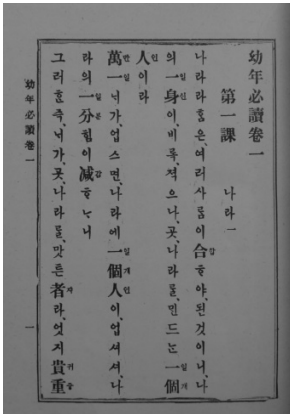 幼年必讀卷一
第一課 나라 一
나라라 ᄒᆞᆷ은、여러사ᄅᆞᆷ이 合합ᄒᆞ야、된것이니、나
의 一일身신이 비록、젹으나、곳、나라를、ᄆᆡᆫ드ᄂᆞᆫ 一일個개
人인이라
萬만一일 늬가、업스면、나라에 一일個개人인이、업셔셔、나
라의 一일分분 힘이 减감ᄒᆞᄂᆞ니
그러ᄒᆞᆫ즉、늬가、곳、나라를、맛튼 者쟈라、엇지 貴귀重즁
幼年必讀卷一
一